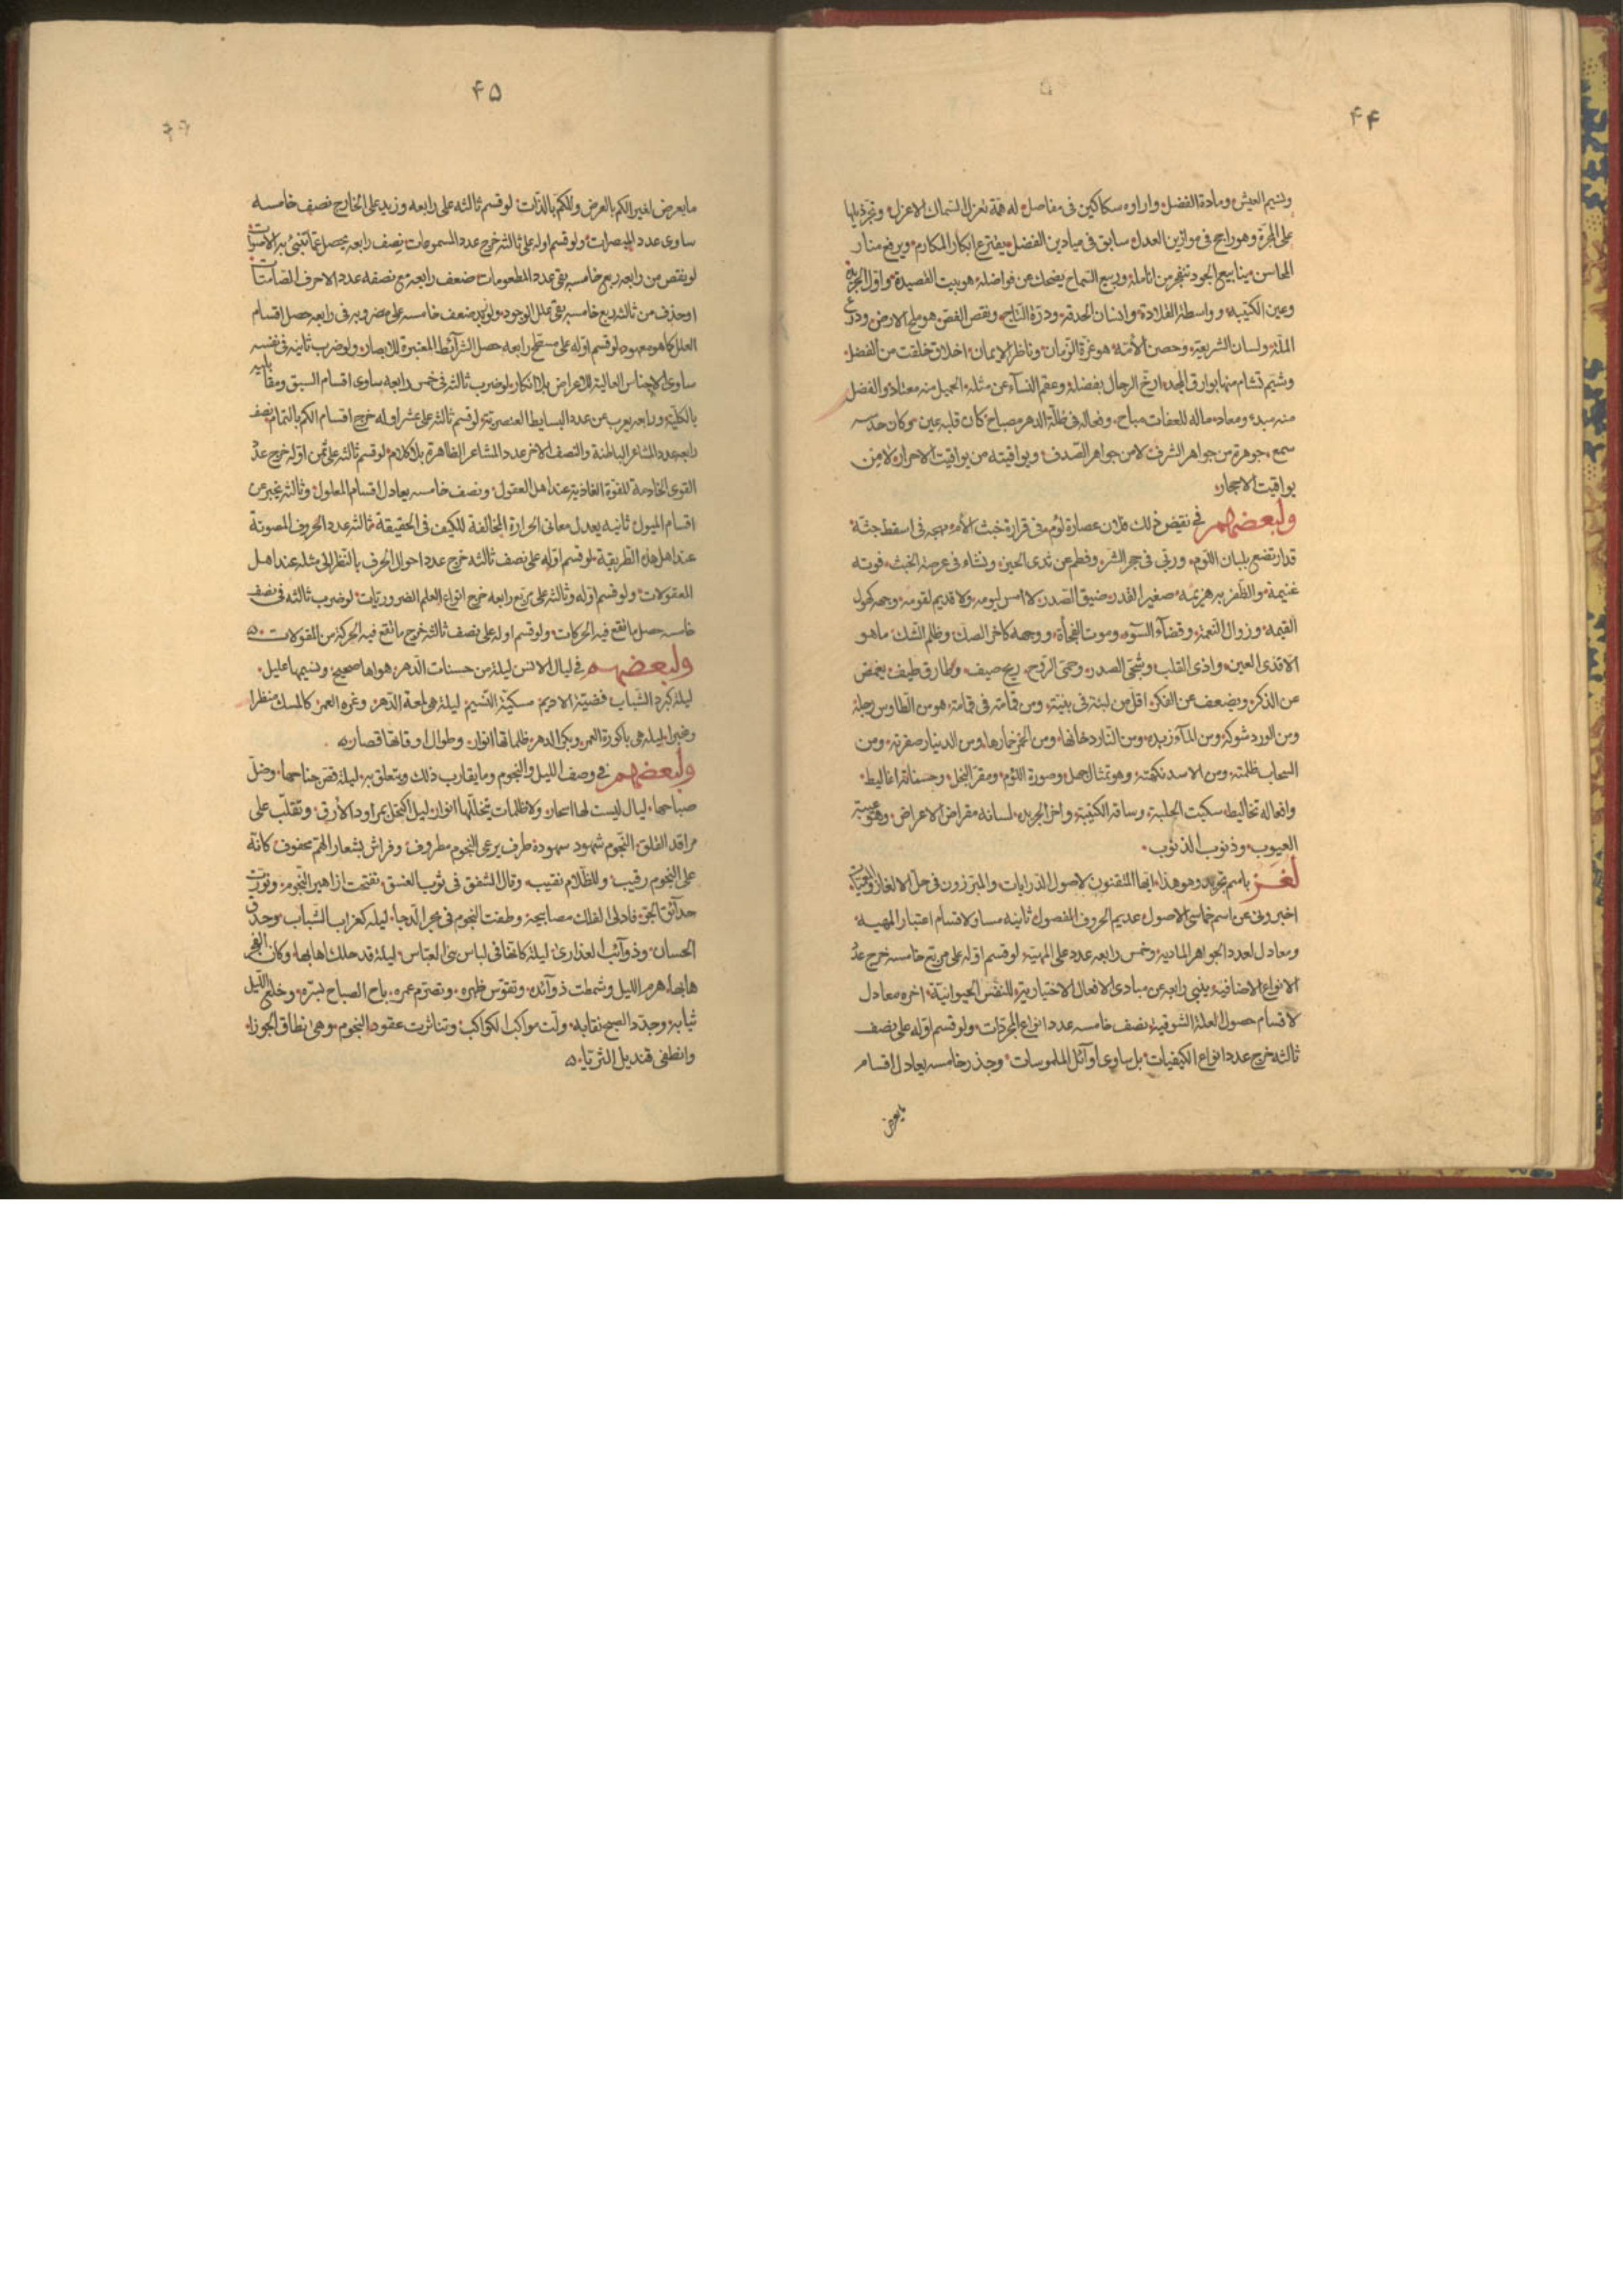 ۴۴
ونسيم العيش ومادة الفضل واراوه سكاكين فى مفاصل له همة تعزل السماك الاعزل وتجر ذيلها
على المجرة وهو راجح فى موازين العدل سابق فى ميادين الفضل يفترع ابكار المكارم ويرفع منار
المحاسن ينابيع الجود تتفجر من انامله وربيع السماح يضحك عن فواضله هو بيت القصيدة واول الجريدة
وعين الكتيبة وواسطة القلادة وانسان الحدقة ودرة التاج ونقص الفص هو ملح الارض ودرع
الملة ولسان الشريعة وحصن الأمة هو غرة الزمان وناظر الايمان اخلاق خلقت من الفضل
وشيم تشام منها بوارق المجد ارخ الرجال بفضله وعقم النسآء عن مثله الجميل منه معتاد والفضل
منه مبدء ومعاد ماله للعفات مباح وفعاله فى ظلة الدهر مصباح كان قلبه عين وكان جسمه
سمع جوهرة من جواهر الشرف لا من جواهر الصدف ويواقيته من يواقيت الاحرار لا من
يواقيت الاحجار
ولبعضهم فى نقيض ذلك فلان عصارة لؤم فى قرارة خبث الأم مهجه فى اسقط جثة
قد ارتضع بلبان اللؤم وربى فى حجر الشر وفطم عن ثدى الخير ونشاء فى عرصة الخبث فوته
غنيمة والظفر به هزيمه صغير القدر ضيق الصدر لا امس ليومه ولا قديم لقومه وجهه كهول
القيمة وزوال النعمة وقضآء السوء وموت الفجأة ووجهه كاخر الصك وظلم الشك ما هو
الا قذى العين واذى القلب وشجى الصدر وحمى الروح ريح صيف وطارق طيف يغمض
عن الذكر ويضعف عن الفكر اقل من لبنة فى بنية ومن قمامة فى قمامة هو من الطاوس رجله
ومن الورد شوكه ومن المآء زبده ومن النار دخانها ومن الخمر خمارها ومن الدينار صفرته ومن
السحاب ظلمته ومن الاسد نكهته وهو تمثال جهل وصورة اللؤم ومقر البخل وحسناته اغاليط
وافعاله تخاليط سكيت الحلبة وساقه الكتيبة واخر الجريدة لسانه مقراض الاعراض وهو عيبة
العيوب وذنوب الذنوب
لغز باسم تجريد وهو هذا ايها المتقنون لاصول الدرايات والمبرزون فى حل الالغاز والمعميات
اخبرونى عن اسم خماسى الاصول عديم الحروف المفصول ثانيه مساو لاقسام اعتبار المهية
ومعادل لعدد الجواهر المادية وخمس رابعه عدد على المهية لو قسم اوله على مربع خامسه خرج عدد
الانواع الاضافية ينبى رابعه عن مبادى الافعال الاختيارية للنفس الحيوانية اخره معادل
لاقسام حصول العلة الشوقية نصف خامسه عدد انواع المجردات ولو قسم اوله على نصف
ثالثه خرج عدد انواع الكيفيات بل ساوى اوائل الملموسات وجذر خامسه يعادل اقسام
ما يعرض
۴۵
ما يعرض لغير الكم بالعرض وللكم بالذات لو قسم ثالثه على رابعه وزيد على الخارج نصف خامسه
ساوى عدد المبصرات ولو قسم اوله على ثالثه خرج عدد المسموعات نصف رابعه يحصل عما تنبئ به الانسيات
لو نقص من رابعه ربع خامسه بقى عدد المطعومات ضعف رابعه مع نصفه عدد الاحرف الصامتات
او حذف من ثالثه ربع خامسه بقى علل الوجود ولو زيد ضعف خامسه على مضروبه فى رابعه حصل اقسام
العلل كما هو معهود لو قسم اوله على مسطح رابعه حصل الشرآئط المعتبرة للابصار ولو ضرب ثانيه فى نفسه
ساوى الاجناس العالية للاعراض بلا انكار لو ضرب ثالثه فى خمس رابعه ساوى اقسام السبق ومقابليه
بالكلية ورابعه يعرب عن عدد البسايط العنصرية لو قسم ثالثه على عشر اوله خرج اقسام الكم بالتمام نصف
رابعه عدد المشاعر الباطنة والنصف الاخر عدد المشاعر الظاهرة بلا كلام لو قسم ثالثه على ثمن اوله خرج عدد
القوى الخادمة للقوة الغاذية عند اهل العقول ونصف خامسه يعادل اقسام المعلول وثالثه يخبر عن
اقسام الميول ثانيه يعدل معانى الحرارة المخالفة للكيف فى الحقيقة ثالثه عدد الحروف المصوتة
عند اهل هذه الطريقة لو قسم اوله على نصف ثالثه خرج عدد احوال الحرف بالنظر الى مثله عند اهل
المعقولات ولو قسم اوله وثالثه على مربع رابعه خرج انواع العلم الضروريات لو ضرب ثالثه فى نصف
خامسه حصل ما تقع فيه الحركات ولو قسم اوله على نصف ثالثه خرج ما تقع فيه الحركة من المقولات
ولبعضهم فى ليال الانس ليلة من حسنات الدهر هواها صحيح ونسيمها عليل
ليلة كبرد الشباب فضية الاديم مسكية النسيم ليلة هى لمعة الدهر وغره العمر كالمسك منظرا
وخبرا ليله هى باكورة العمر وبكر الدهر ظلماتها انوار وطوال اوقاتها قصار
ولبعضهم فى وصف الليل والنجوم وما يقارب ذلك ويتعلق به ليلة قص جناحها وضل
صباحها ليال ليست لها اسحار ولا ظلمات تتخللها انوار ليل اكتحل بمراود الأرق وتقلب على
مراقد القلق النجوم شهود سهوده طرف يرعى النجوم مطروف وفراش بشعار الهم محفوف كانه
على النجوم رقيب وللظلام نقيب وقال الشفق فى ثوب الغسق تفتحت ازاهير النجوم وتورت
حدآئق الجو فادلى الفلك مصابيحة وطفت النجوم فى بحر الدجا ليله كغراب الشباب وحدق
الحسان وذوآئب العذارى ليلة كانها فى لباس بنى العباس ليلة قد حلك اهابها وكان الفجر
هابها هرم الليل وشمطت ذوآئبه وتقوس ظهره وتصرم عمره باح الصباح بسره وخلع الليل
ثيابه وجدد الصبح نقابه ولت مواكب الكواكب وتناثرت عقود النجوم وهى نطاق الجوزا
وانطفى قنديل الثريا